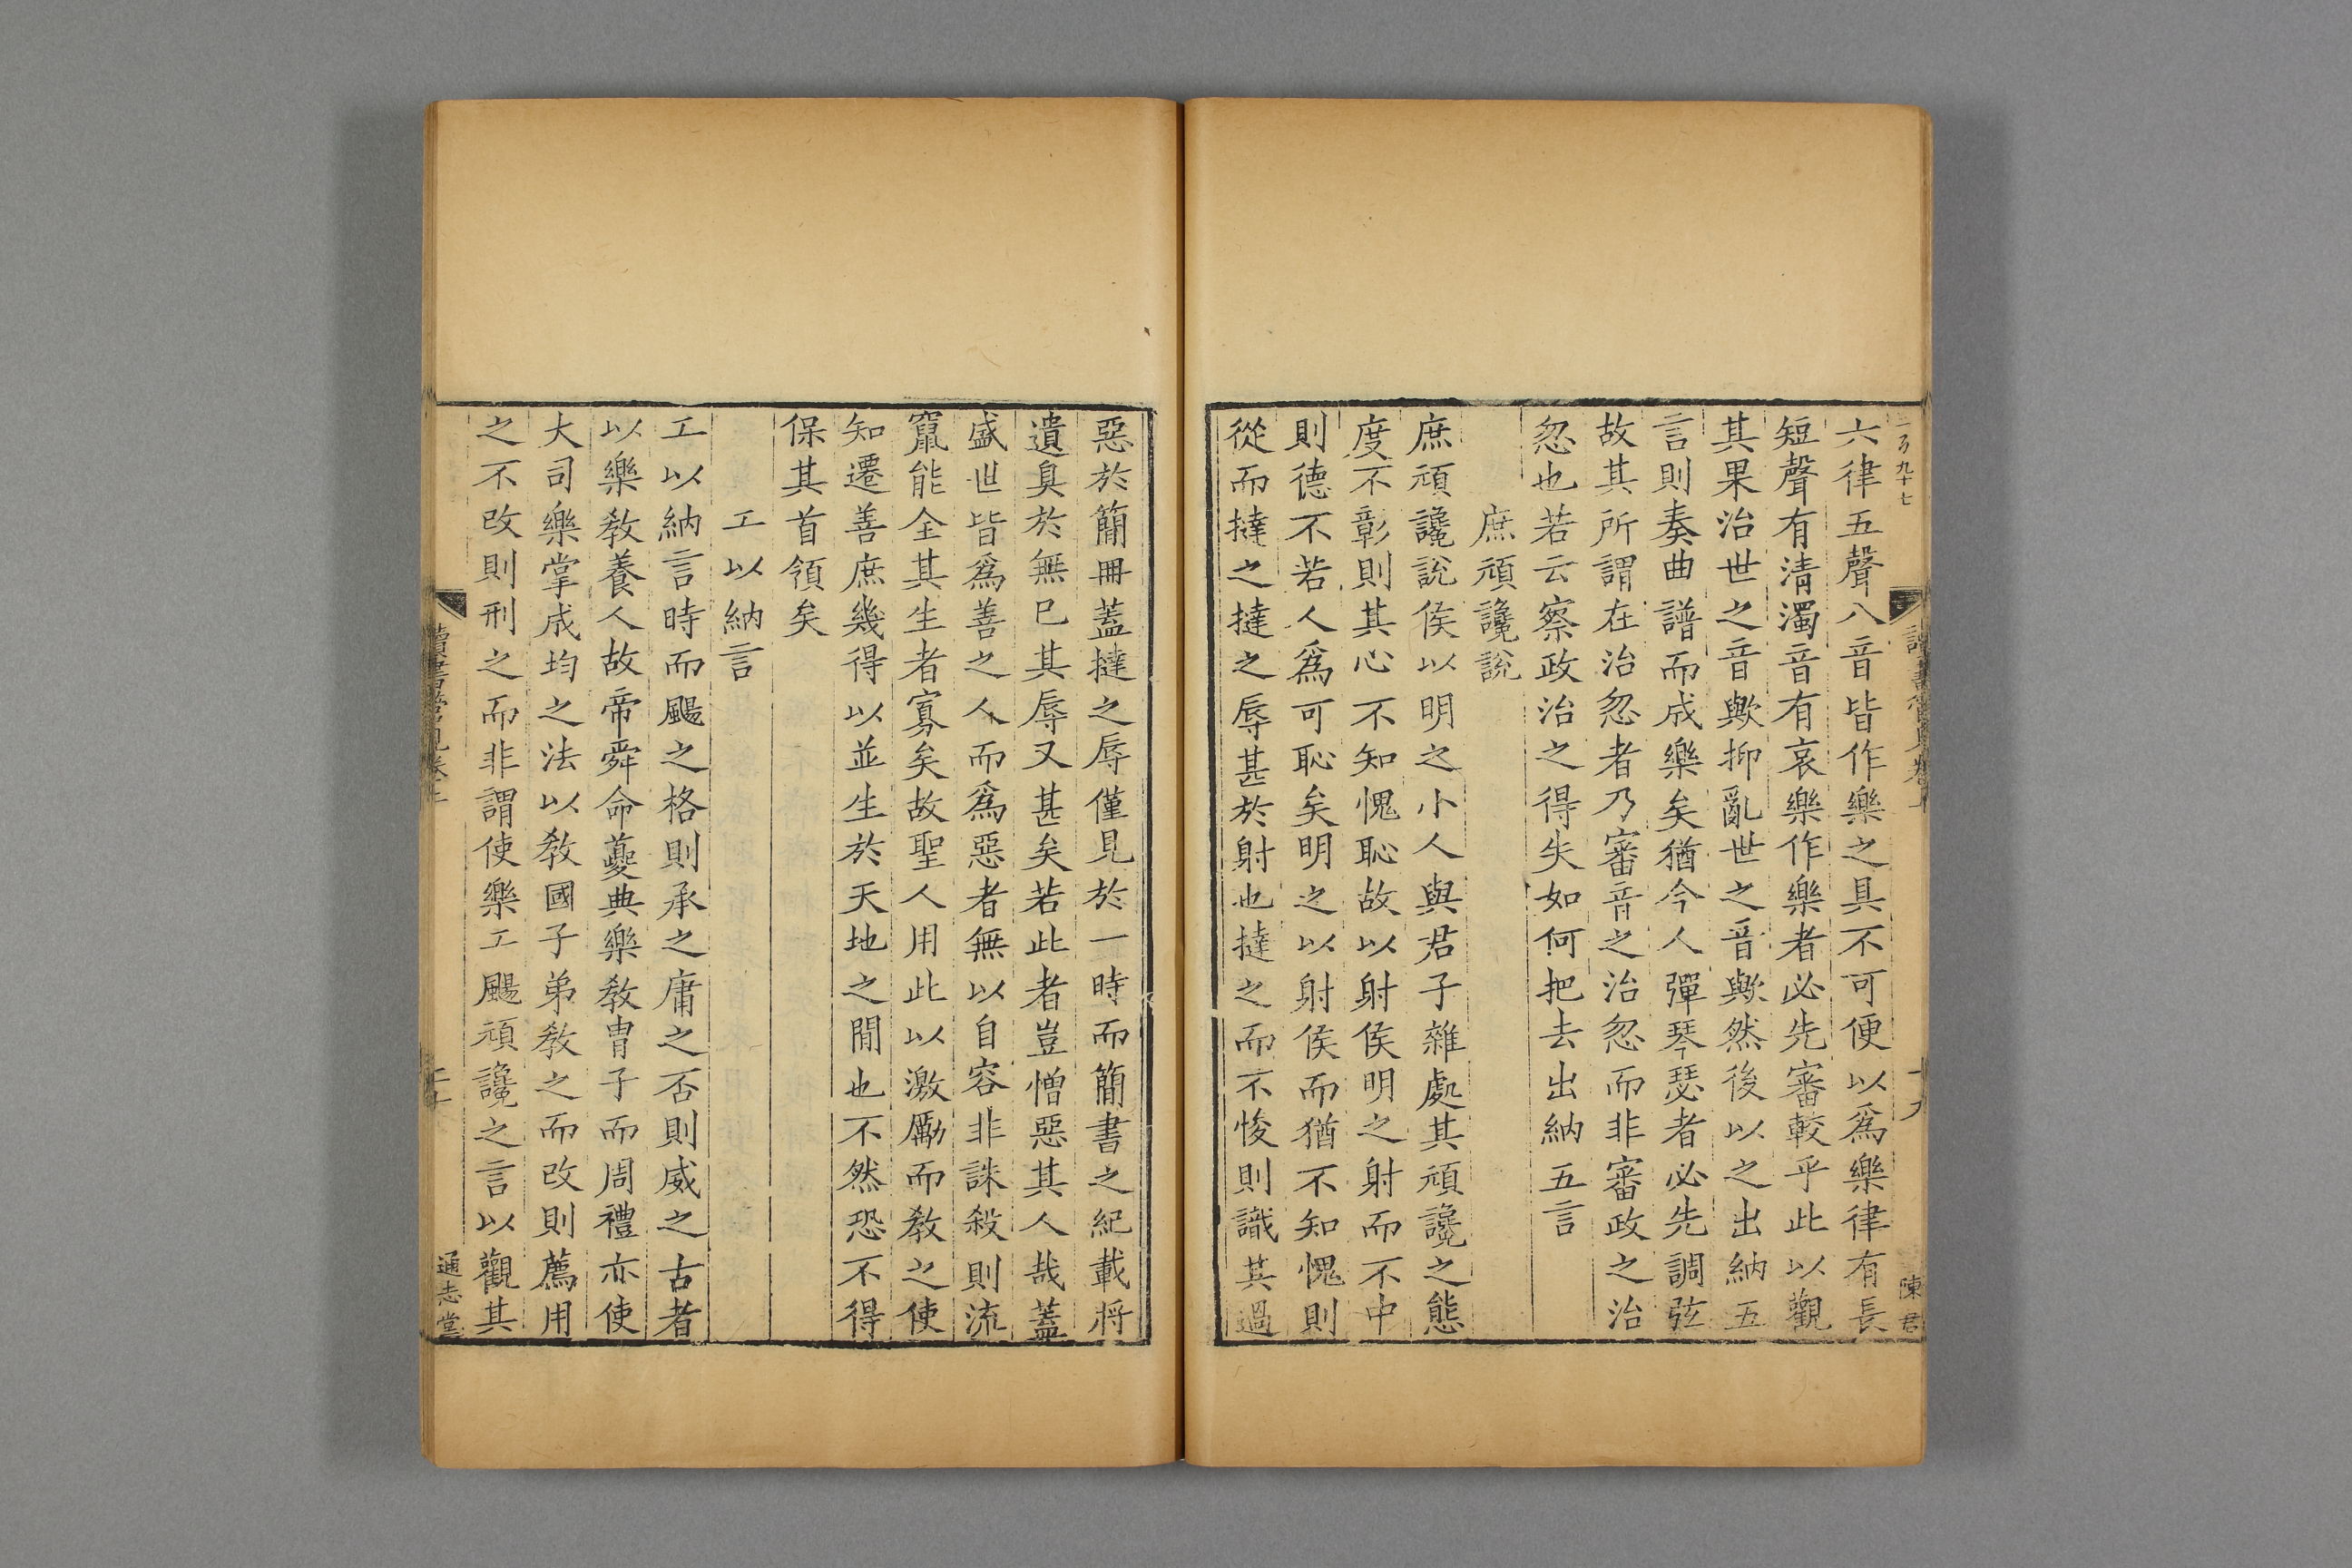 二百九十七
六律五聲八音皆作樂之具不可便以爲樂律有長
短聲有清濁音有哀樂作樂者必先審較乎此以觀
其果治世之音歟抑亂世之音歟然後以之出納五
言則奏曲譜而成樂矣猶今人彈琴瑟者必先調弦
故其所謂在治忽者乃審音之治忽而非審政之治
忽也若云察政治之得失如何把去出納五言
庶頑讒說
庶頑讒說侯以明之小人與君子雜處其頑讒之態
度不彰則其心不知愧恥故以射侯明之射而不中
則德不若人爲可恥矣明之以射侯而猶不知愧則
從而撻之撻之辱甚於射也撻之而不悛則識其過
讀書管見卷上
十九
陳君
惡於簡冊蓋撻之辱僅見於一時而簡書之紀載將
遺臭於無已其辱又甚矣若此者豈憎惡其人哉蓋
盛世皆爲善之人而爲惡者無以自容非誅殺則流
竄能全其生者寡矣故聖人用此以激勵而教之使
知遷善庶幾得以並生於天地之間也不然恐不得
保其首領矣
工以納言
工以納言時而颺之格則承之庸之否則威之古者
以樂教養人故帝舜命夔典樂教胄子而周禮亦使
大司樂掌成均之法以教國子弟教之而改則薦用
之不改則刑之而非謂使樂工颺頑讒之言以觀其
讀書管見卷上
二十
通志堂